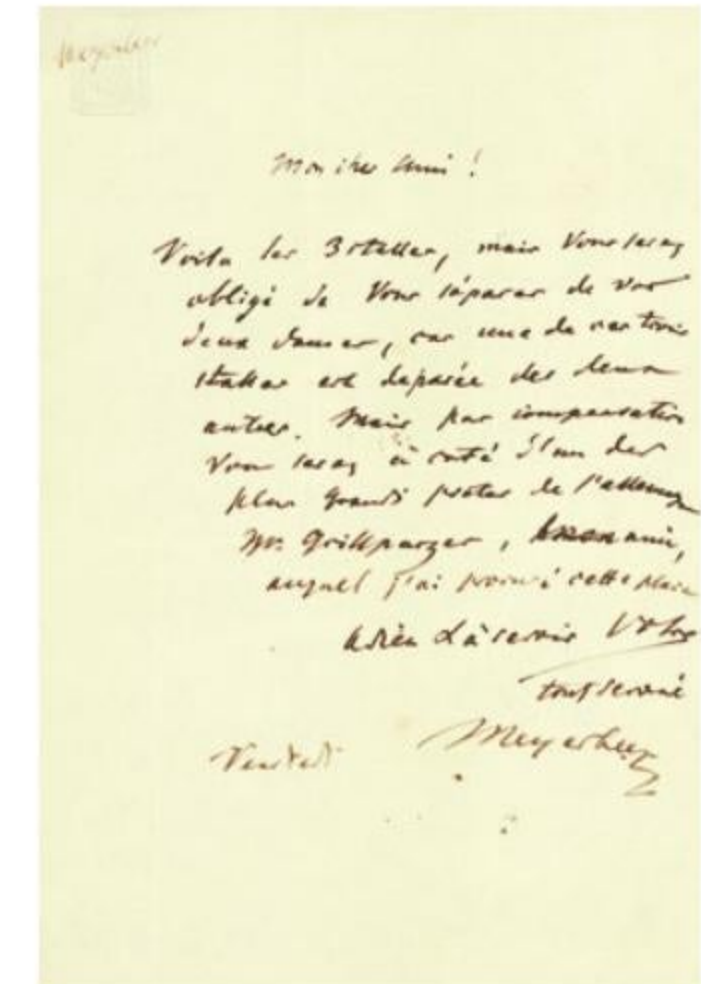 Meyerbeer
Mon cher Ami !
Voila les 3 stalles, mais Vous serez
obligé de Vous séparer de vos
deux dames, car une de ces trois
stalles est separée des deux
autres. Mais par compensation
Vous serez à coté d'un des
plus grands poetes de l'allemagne
Mr. Grillparzer, ami,
auquel j'ai promi cette place
Adieu Votre
tout devoué
Meyerbeer
Vendredi